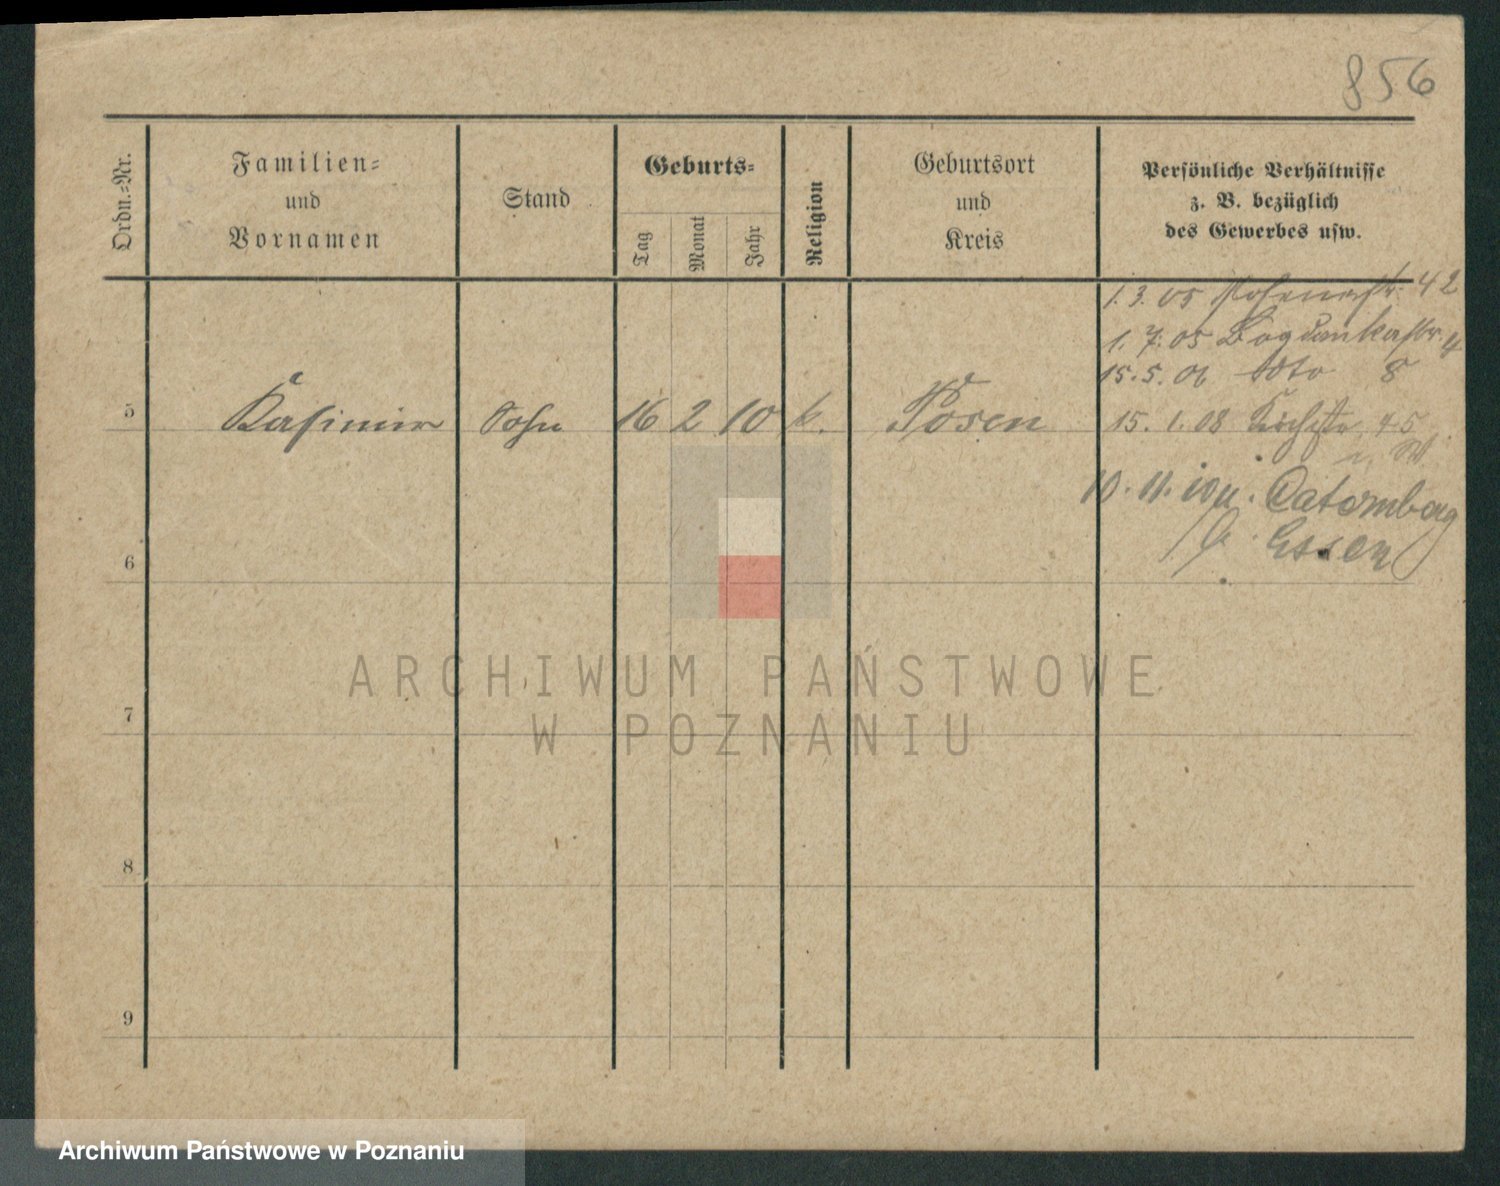 856
Ordn.-Nr.
Familien-
und
Vornamen
Stand
Geburts-
Tag
Monat
Jahr
Religion
Geburtsort
und
Kreis
Persönliche Verhältnisse
z. B. bezüglich
des Gewerbes usw.
1.3.05 Posenerstr. 42
1.7.05 Bogdankastr. 4
15.5.06 dto 8
5 Kasimir Sohn 16 2 10 k. Posen 15.1.08 45
10.11. Caternberg
b. Essen
6
7
8
9
ARCHIWUM PAŃSTWOWE
W POZNANIU
Archiwum Państwowe w Poznaniu